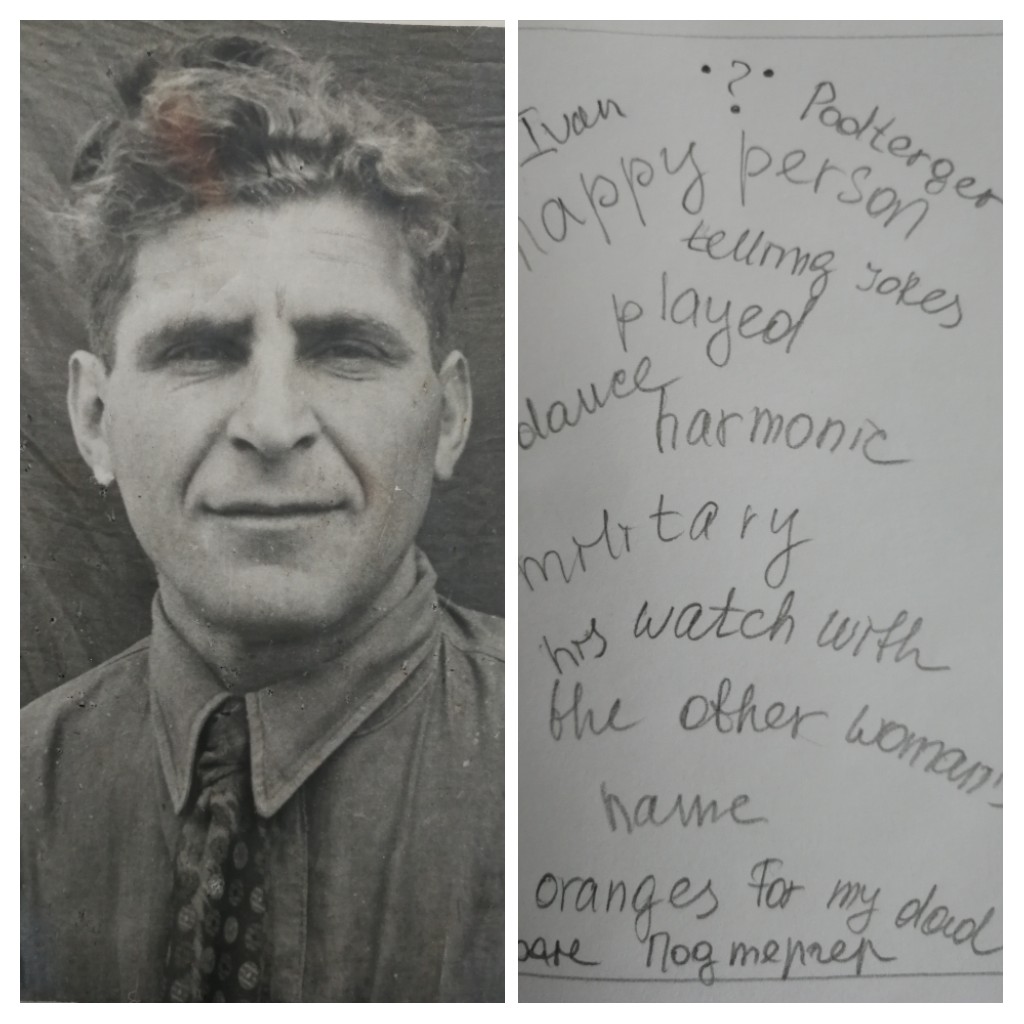 ?
Ivan Podterger
happy person
telling jokes
played
dance
harmonic
military
his watch with
the other woman's
name
oranges for my dad
Подтергер